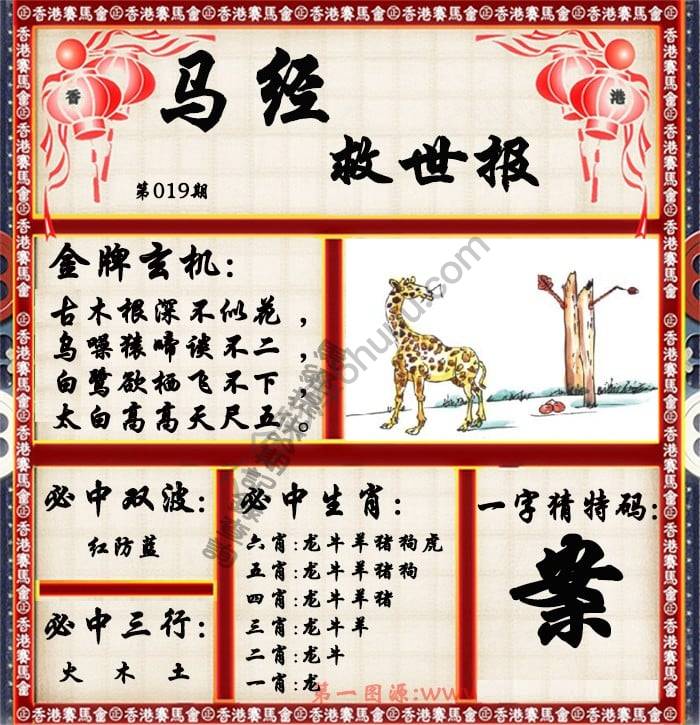 香港賽馬會
香
港
马经
救世报
第019期
金牌玄机:
古木根深不似花，
乌噪猿啼谈不二，
白鹭欲栖飞不下，
太白高高天尺五。
必中双波:
红防蓝
必中三行:
火 木 土
必中生肖:
六肖:龙牛羊猪狗虎
五肖:龙牛羊猪狗
四肖:龙牛羊猪
三肖:龙牛羊
二肖:龙牛
一肖:龙
一字猜特码:
案
第一图源:www